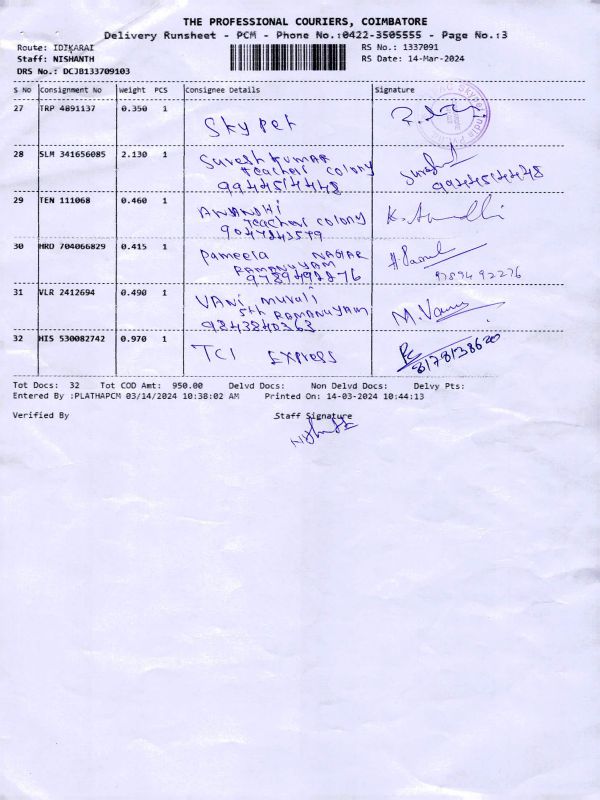 THE PROFESSIONAL COURIERS, COIMBATORE
Delivery Runsheet - PCM - Phone No.:0422-3505555 - Page No.:3
Route: IDIKARAI RS No.: 1337091
Staff: NISHANTH RS Date: 14-Mar-2024
DRS No.: DCJB133709103
S No Consignment No Weight PCS Consignee Details Signature
27 TRP 4891137 0.350 1
Sky pet
28 SLM 341656085 2.130 1 Suresh kumar
teachers colony
9944514448 9944514448
29 TEN 111068 0.460 1 ANANDHI
Teachers colony
9047843579
30 MRD 704066829 0.415 1 Pameela NAGAR
RAMANUYAM
9789492276 9789492276
31 VLR 2412694 0.490 1 VANI murali
5th RAMANUYAM
9843840363 M. Vani
32 HIS 530082742 0.970 1
TCI EXPRESS 8178138620
Tot Docs: 32 Tot COD Amt: 950.00 Delvd Docs: Non Delvd Docs: Delvy Pts:
Entered By :PLATHAPCM 03/14/2024 10:38:02 AM Printed On: 14-03-2024 10:44:13
Verified By Staff Signature